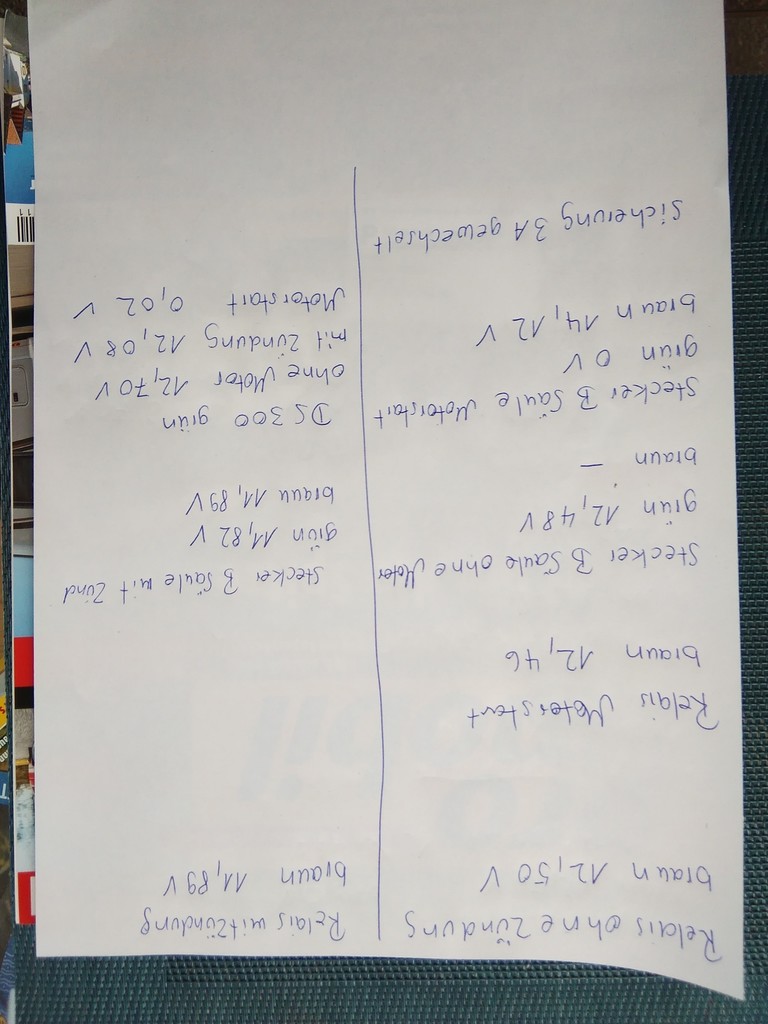 Relais ohne Zündung
braun 12,50 V
Relais Motorstart
braun 12,46
Stecker B Säule ohne Motor
grün 12,48 V
braun —
Stecker B Säule Motorstart
grün 0 V
braun 14,12 V
Sicherung 3 A gewechselt
Relais mit Zündung
braun 11,89 V
Stecker B Säule mit Zünd
grün 11,82 V
braun 11,89 V
DS 300 grün
ohne Motor 12,70 V
mit Zündung 12,08 V
Motorstart 0,02 V